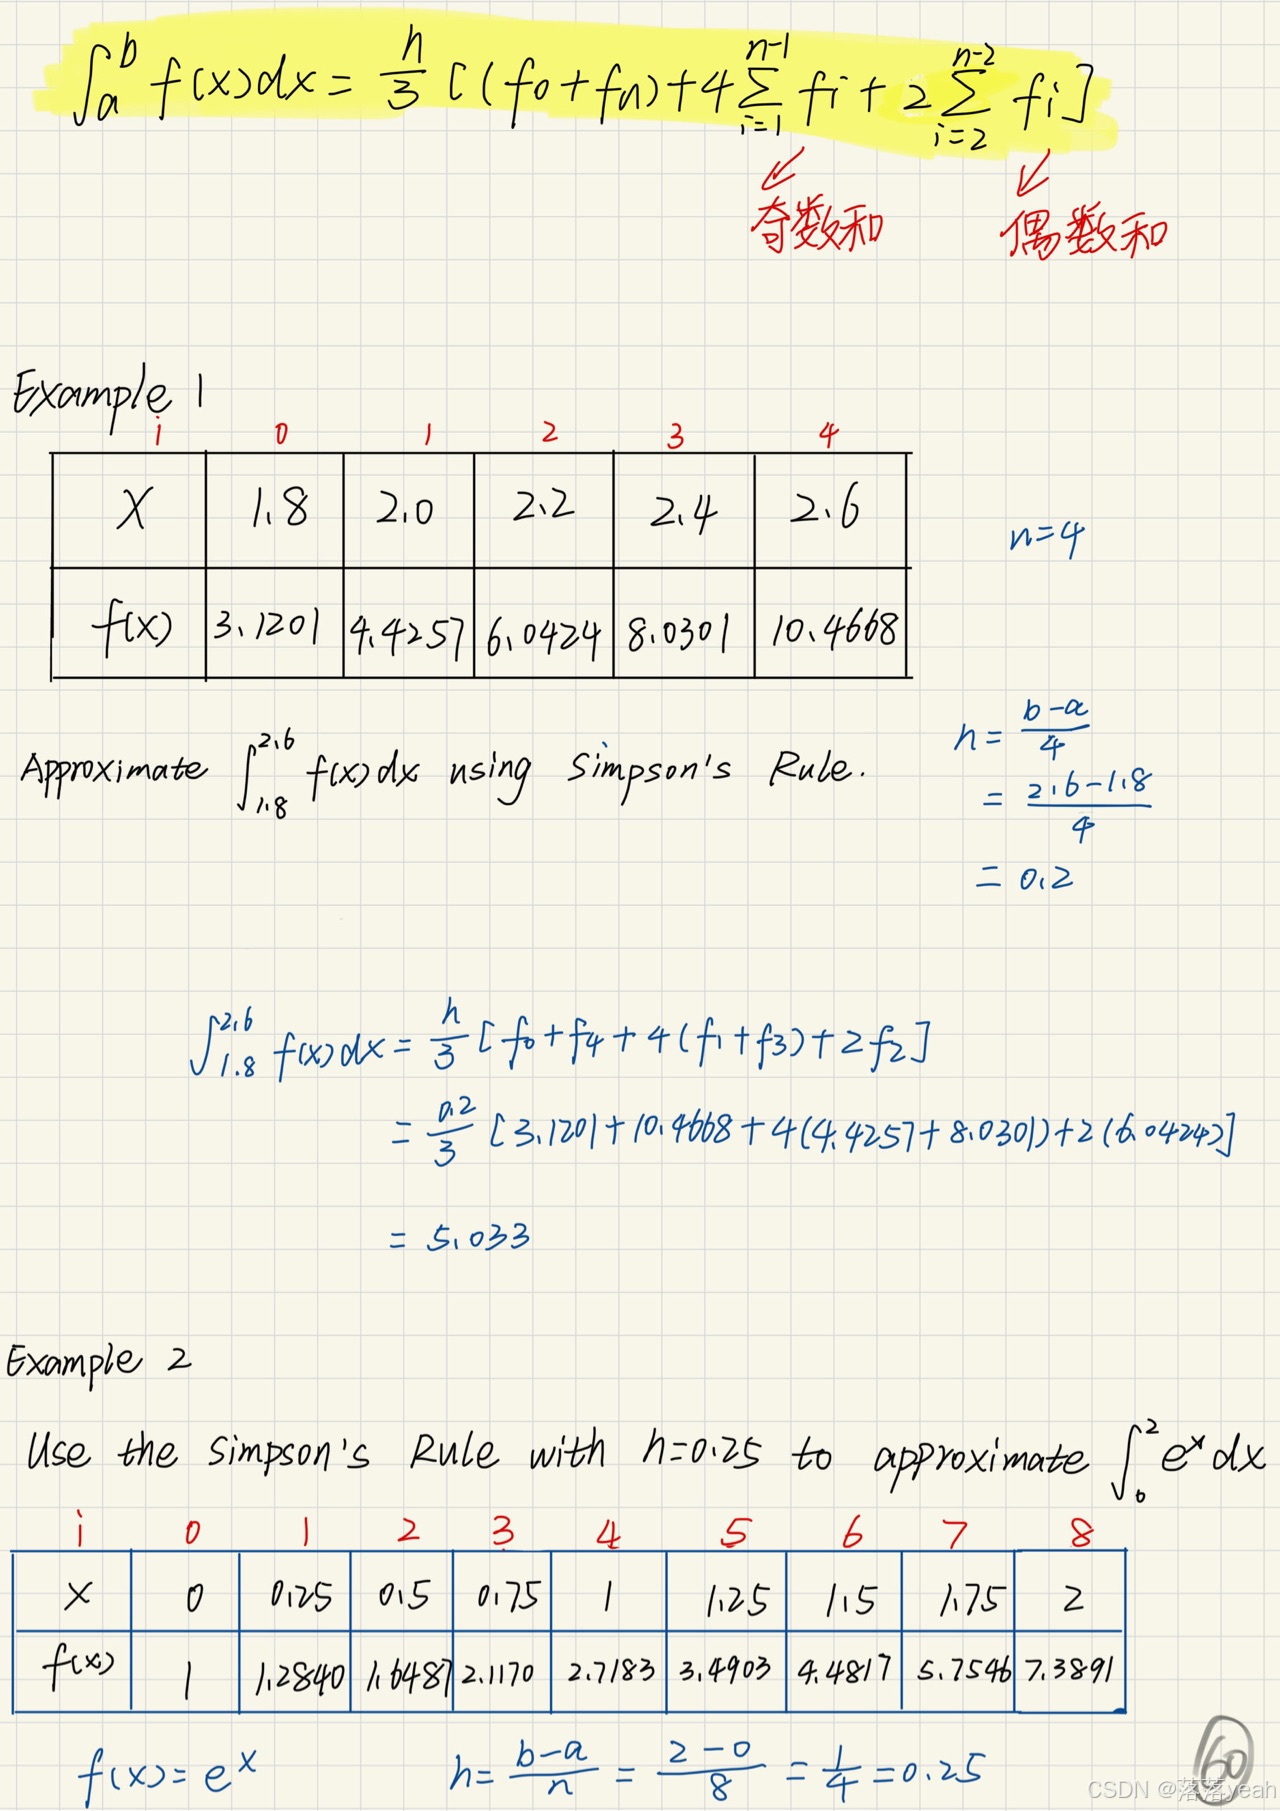 ∫_a^b f(x)dx = h/3 [(f0+fn)+4 ∑_{i=1}^{n-1} fi + 2 ∑_{i=2}^{n-2} fi]
奇数和 偶数和
Example 1
i 0 1 2 3 4
X 1.8 2.0 2.2 2.4 2.6
n=4
f(x) 3.1201 4.4257 6.0424 8.0301 10.4668
Approximate ∫_{1.8}^{2.6} f(x)dx using Simpson's Rule.
h = (b-a)/4
= (2.6-1.8)/4
= 0.2
∫_{1.8}^{2.6} f(x)dx = h/3 [f0+f4+4(f1+f3)+2f2]
= 0.2/3 [3.1201+10.4668+4(4.4257+8.0301)+2(6.0424)]
= 5.033
Example 2
Use the Simpson's Rule with h=0.25 to approximate ∫_0^2 e^x dx
i 0 1 2 3 4 5 6 7 8
X 0 0.25 0.5 0.75 1 1.25 1.5 1.75 2
f(x) 1 1.2840 1.6487 2.1170 2.7183 3.4903 4.4817 5.7546 7.3891
f(x)=e^x h= (b-a)/n = (2-0)/8 = 1/4 =0.25
60
CSDN @落落yeah